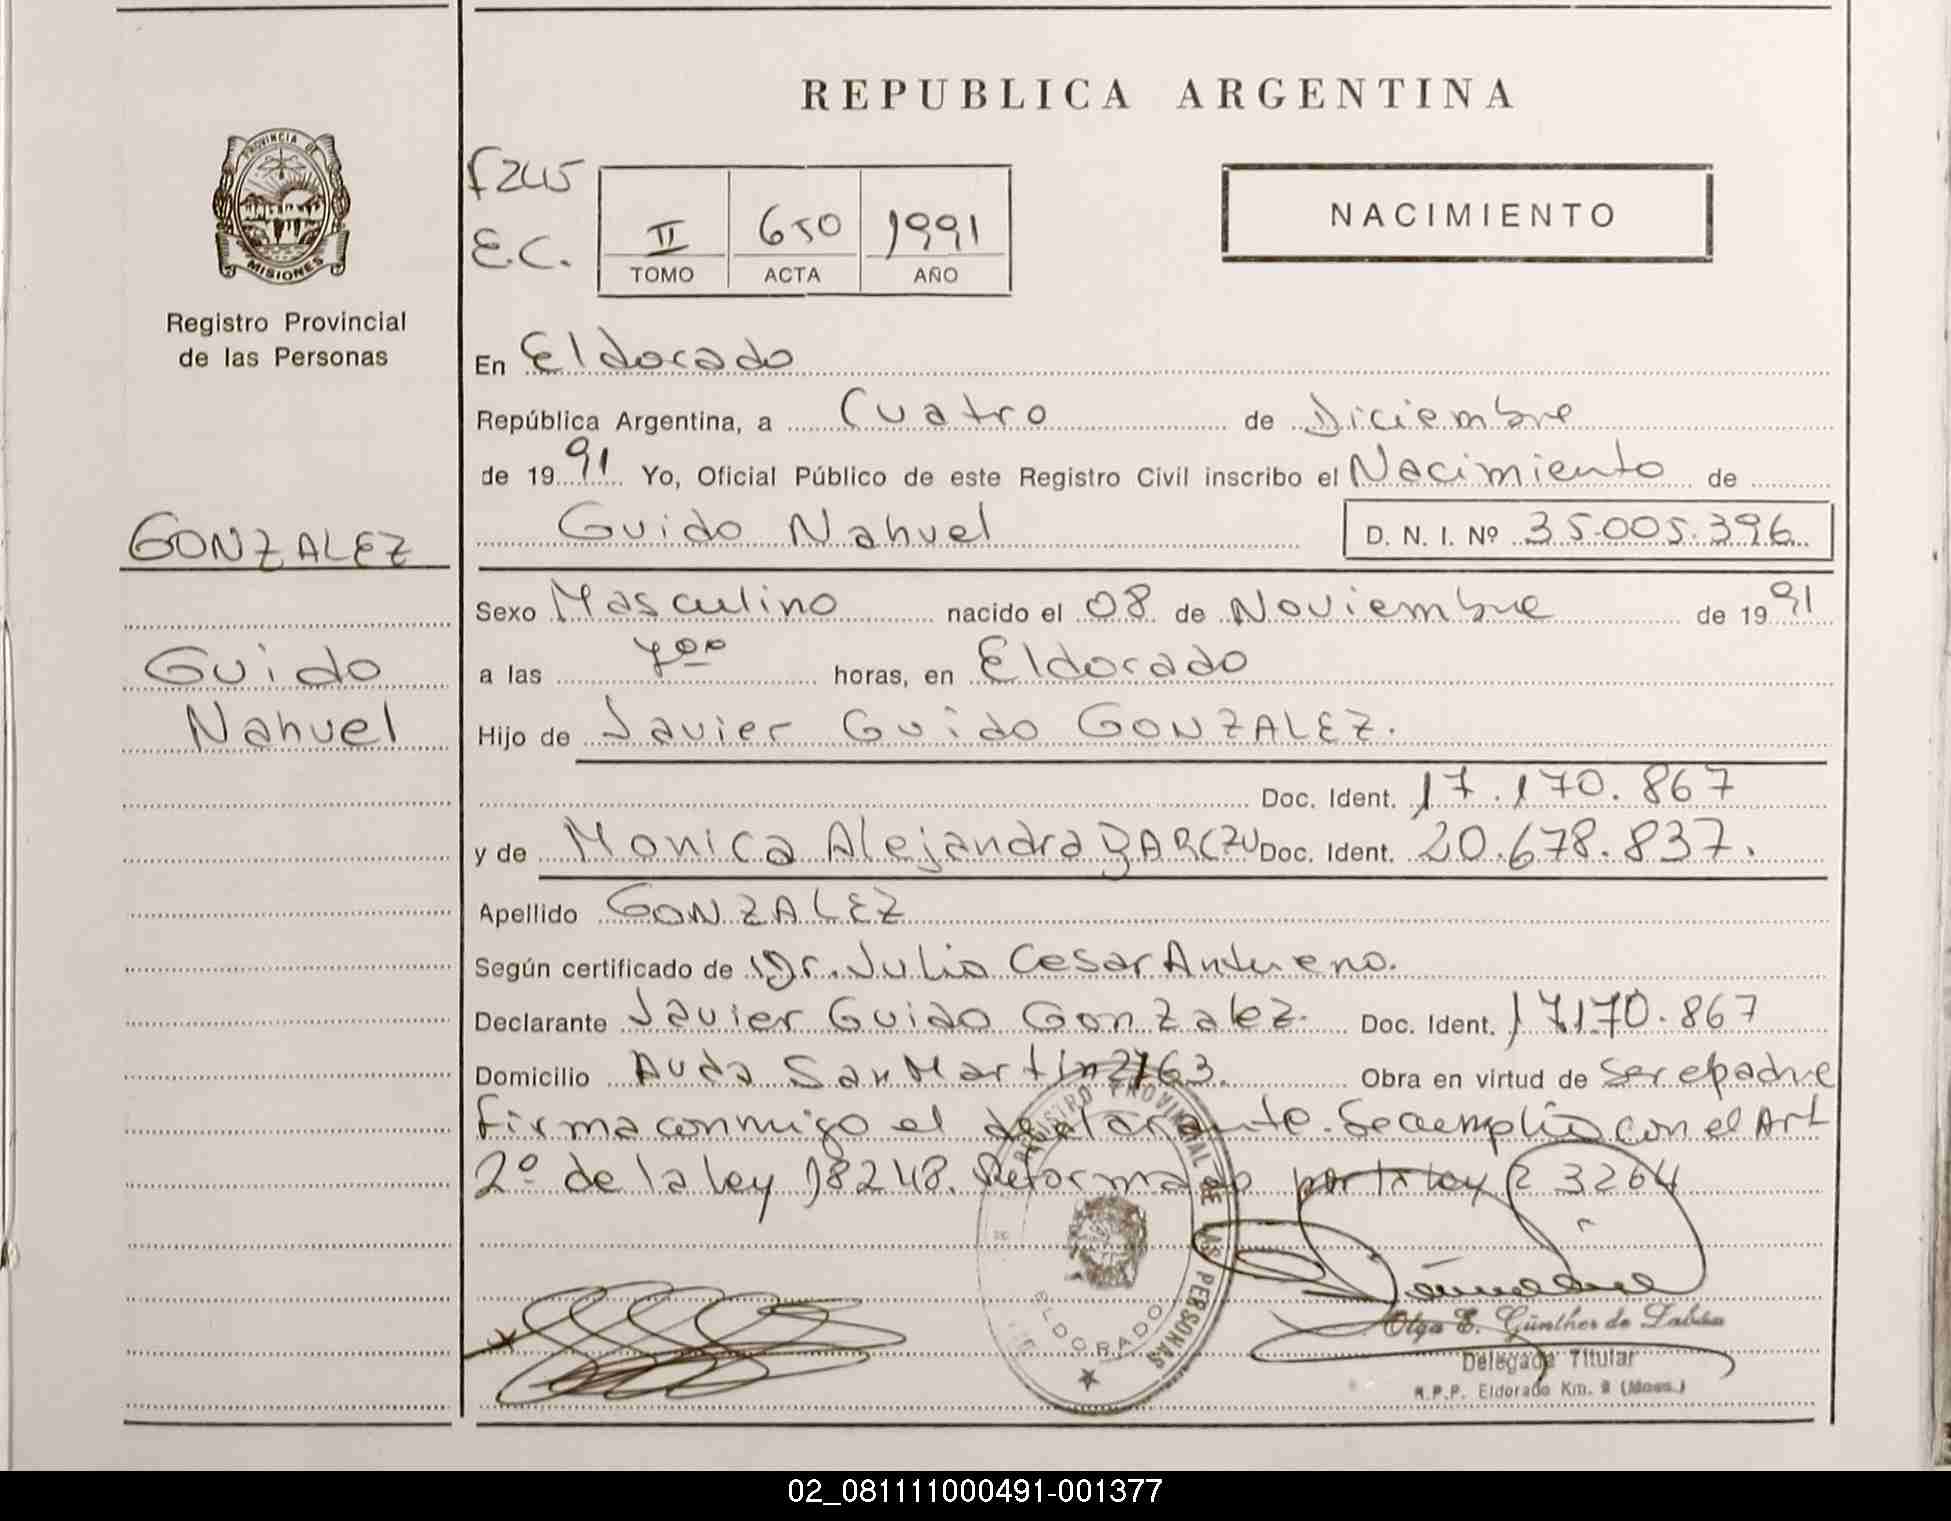 REPUBLICA ARGENTINA
PROVINCIA DE
MISIONES
Registro Provincial
de las Personas
F245
E.C.
II 650 1991
TOMO ACTA AÑO
NACIMIENTO
En Eldorado
República Argentina, a Cuatro de Diciembre
de 1991 Yo, Oficial Público de este Registro Civil inscribo el Nacimiento de
Guido Nahuel D. N. I. Nº 35.005.396
GONZALEZ
Guido
Nahuel
Sexo Masculino nacido el 08 de Noviembre de 1991
a las 7 00 horas, en Eldorado
Hijo de Javier Guido GONZALEZ.
Doc. Ident. 17.170.867
y de Monica Alejandra Doc. Ident. 20.678.837.
Apellido GONZALEZ
Según certificado de Dr. Julio Cesar Antueno.
Declarante Javier Guido Gonzalez. Doc. Ident. 17170.867
Domicilio Avda San Martin 2163. Obra en virtud de ser el padre
firma conmigo el declarante. Se cumplio con el Art
2º de la ley 18248. Reformado por la ley 23264
REGISTRO PROVINCIAL DE LAS PERSONAS
ELDORADO
Olga E. Günther de
Delegada Titular
R.P.P. Eldorado Km. 9 (Mnes.)
02_081111000491-001377